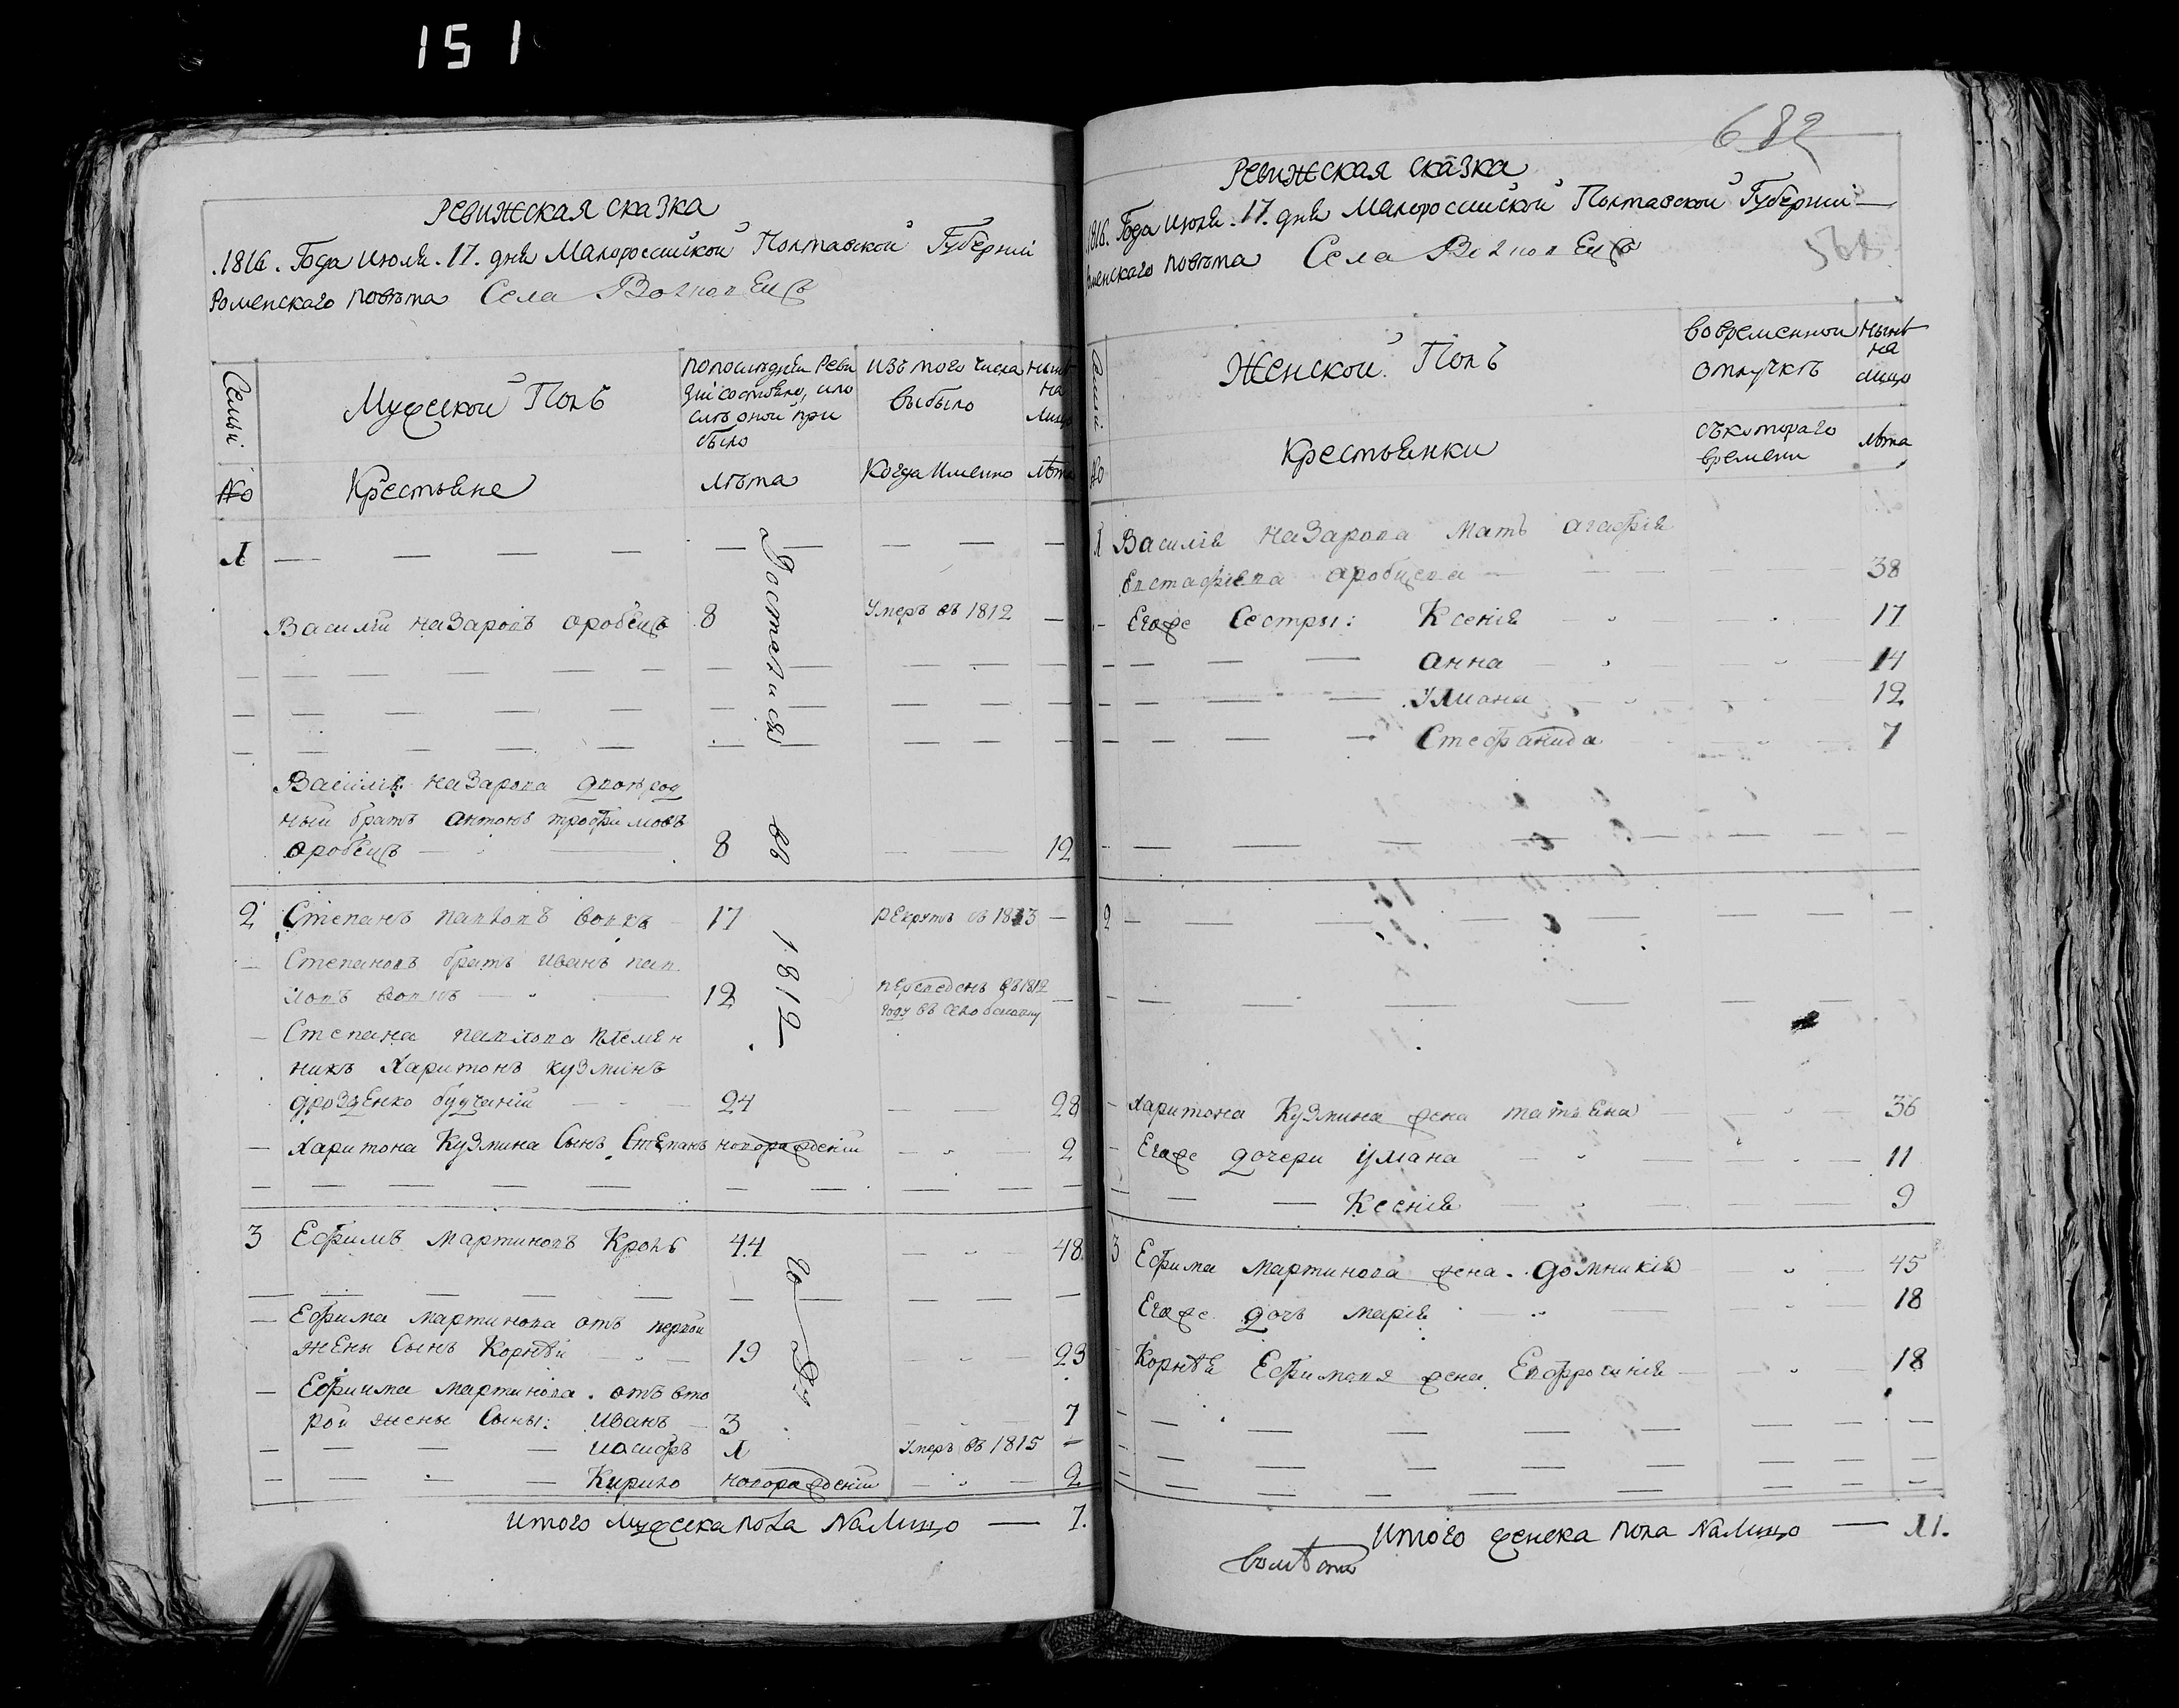 151
Ревижская сказка
1816. Года июля. 17. дня Малороссийской Полтавской Губернии
Роменского повѣта Села Волковецъ
Семьи
Мужеской Полъ
по последней Реви
зии состояло, и по
слѣ оной при
было
изъ того числа
выбыло
ныне
на
лицо
№
Крестьяне
лѣта
Когда Именно
лѣта
1
Василий назаровъ дробецъ 8 Умеръ въ 1812
Василия назарова двоюрод
ный братъ антонъ трофимовъ
дробецъ 8 12
2 Степанъ павловъ вовкъ 17 рекрутъ въ 1813
Степановъ братъ иванъ пав
ловъ вовкъ 12 переведенъ въ 1812
году въ село
Степана павлова племян
никъ Харитонъ кузминъ
дрозденко 24 28
Харитона Кузмина Сынъ Степанъ новорождений 2
3 Ефимъ Мартиновъ Кровъ 44 48
Ефима мартинова отъ первой
жены Сынъ Корнѣй 19 23
Ефима мартинова. отъ вто
рой жены Сыны: иванъ 3 7
иосифъ 1 Умеръ въ 1815
Кирило новорожденний 2
Остался въ 1812. году
итого мужеска пола налицо — 7.
682
568
Ревижская сказка
1816. Года июля. 17. дня Малороссийской Полтавской Губернии
Роменского повѣта Села Волковецъ
Семьи
Женской Полъ
во временной
отлучкѣ
ныне
на
лицо
№
Крестьянки
съ котораго
времени
лѣта
1 Василия назарова мать агафия
Евстафиева дробцева 38
Егоже Сестры: Ксения 17
анна 14
Улиана 12
Стефанида 7
2
Харитона Кузмина жена татьяна 36
Егоже дочери Улиана 11
Ксения 9
3 Ефима мартинова жена. домникия 45
Егоже дочь мария 18
Корнѣя Ефимова жена Евфросиния 18
итого женска пола налицо — 11.